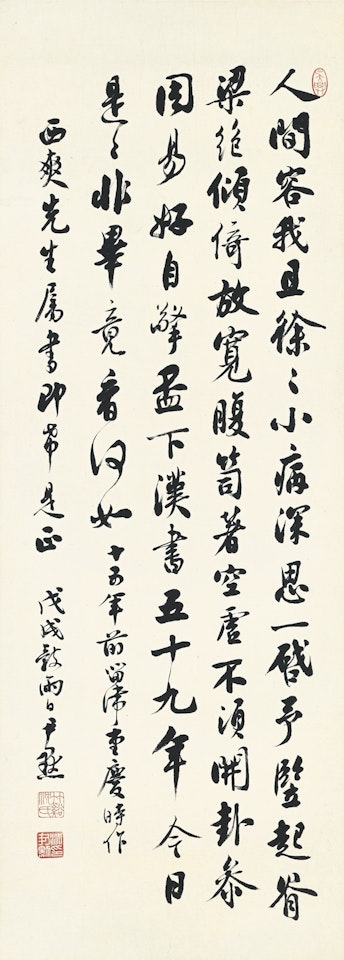 人間容我且徐〻小病深思一啟予豎起脊
梁絕傾倚放寬腹笥著空虛不須開卦參
周易好自擎盃下漢書五十九年今日
是〻非畢竟看何如十五年前留滯重慶時作
西爽先生屬書即希是正 戊戌穀雨日尹默